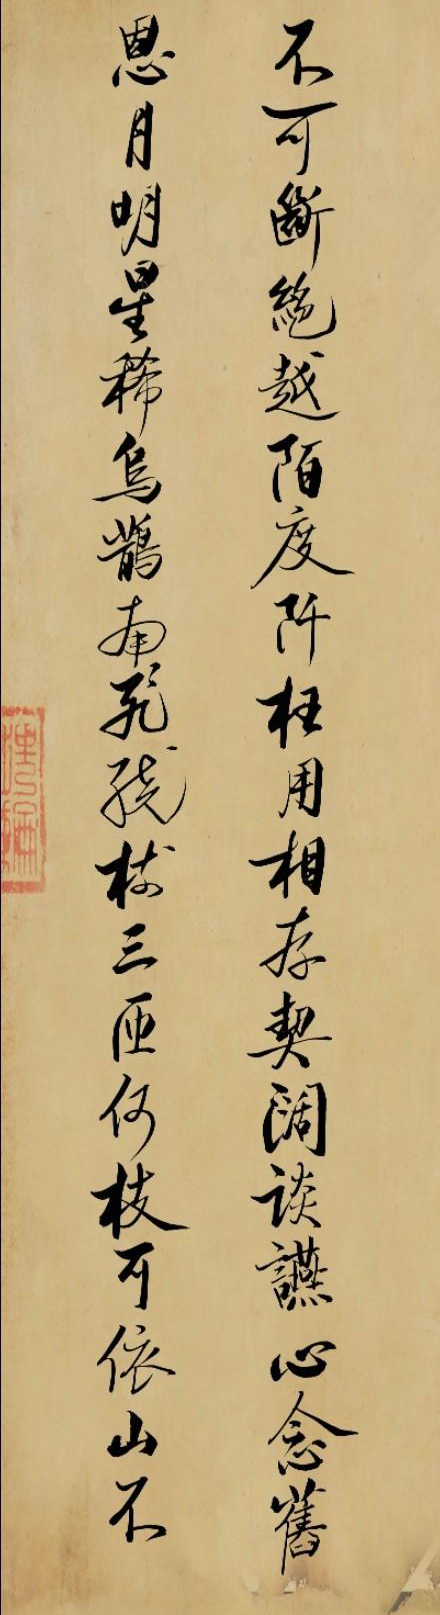 不可斷絕越陌度阡枉用相存契闊談讌心念舊
恩月明星稀烏鵲南飛繞樹三匝何枝可依山不